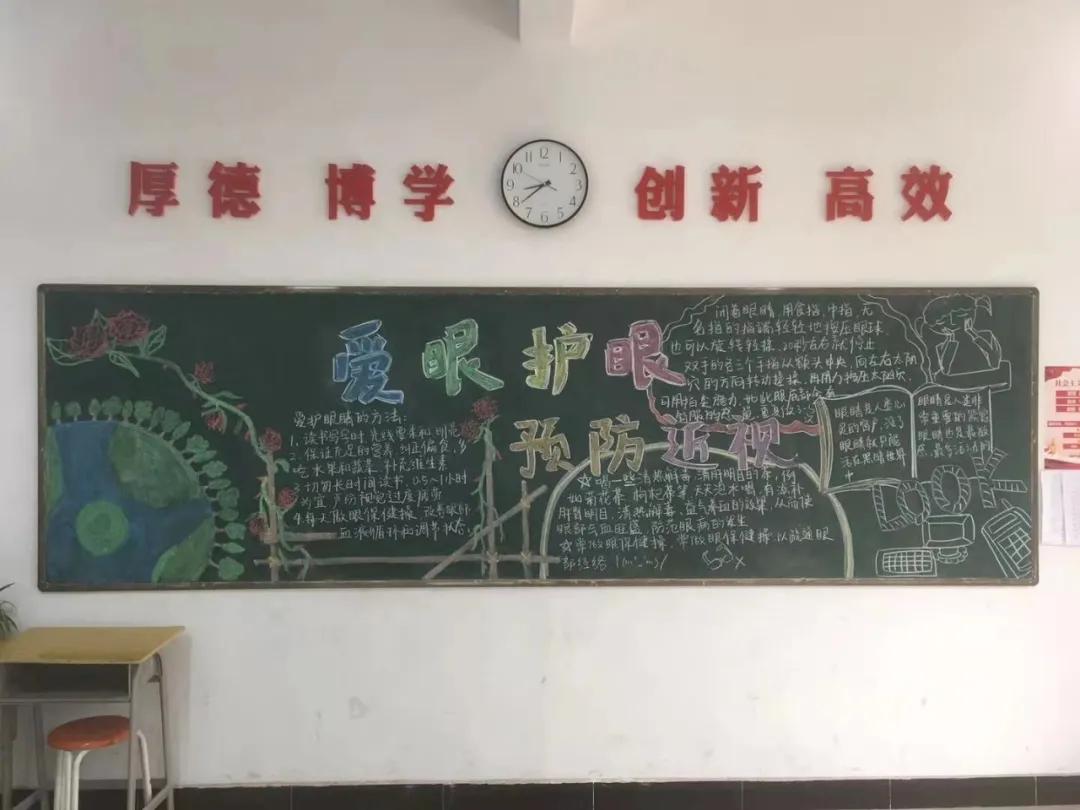 厚德 博学 创新 高效
12
10 2
9 3
8 4
7 6 5
爱眼护眼
预防近视
爱护眼睛的方法:
1. 读书写字时光线要柔和明亮
2. 保证充足的营养 纠正偏食,多
吃水果和蔬菜 补充维生素
3. 切勿长时间读书, 0.5~1小时
为宜 严防视觉过度疲劳
4. 每天做眼保健操 改善眼部
血液循环和调节状态.
闭着眼睛, 用食指, 中指, 无
名指的指端轻轻地按压眼球
也可以旋转轻揉. 20秒左右就停止
双手的各三个手指从额头中央, 向左右太阳
穴的方向转动搓揉, 再用力按压太阳穴,
可用指尖施力. 如此眼底部会有
☆喝一些清热解毒 清肝明目的茶, 例
如菊花茶 枸杞茶等 天天泡水喝, 有滋补
肝肾明目, 清热解毒, 益气养血的效果, 从而使
眼部气血旺盛, 防范眼病的发生
☆常做眼保健操, 常做眼保健操以疏通眼
部经络
眼睛是人类心
灵的窗户, 没了
眼睛就只能
活在黑暗世界
中
眼睛是人类非
常重要的器官
眼睛也是最脆